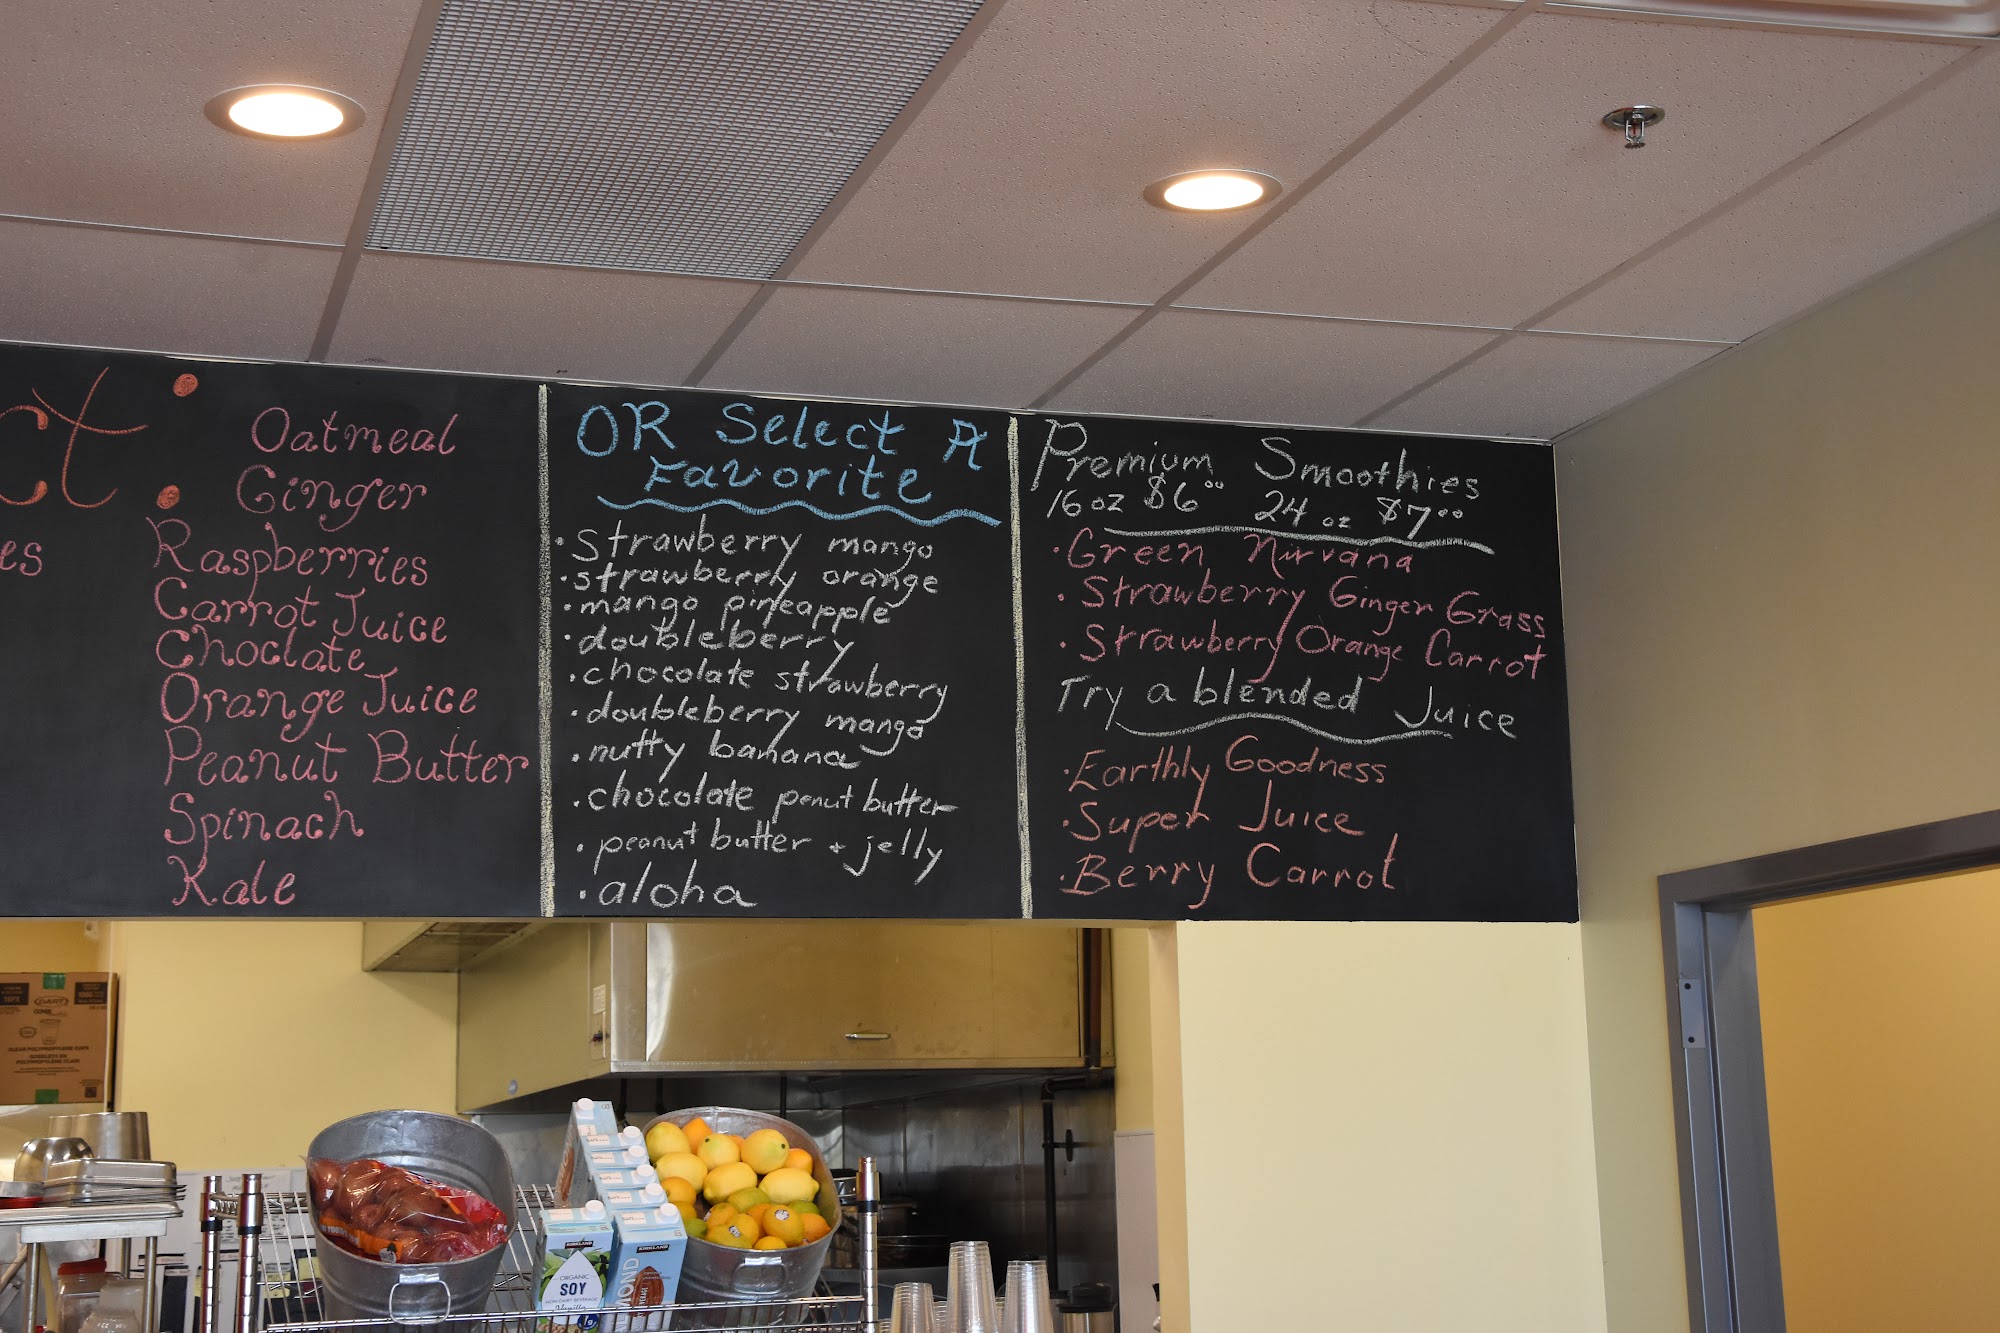 ct:
es
Oatmeal
Ginger
Raspberries
Carrot Juice
Choclate
Orange Juice
Peanut Butter
Spinach
Kale
OR Select A
Favorite
• strawberry mango
• strawberry orange
• mango pineapple
• doubleberry
• chocolate strawberry
• doubleberry mango
• nutty banana
• chocolate penut butter
• peanut butter + jelly
• aloha
Premium Smoothies
16 oz $6.00 24 oz $7.00
• Green Nirvana
• Strawberry Ginger Grass
• Strawberry Orange Carrot
Try a blended Juice
• Earthly Goodness
• Super Juice
• Berry Carrot
DART
CLEAR POLYPROPYLENE CUPS
KIRKLAND
ORGANIC
SOY
Vanilla
KIRKLAND